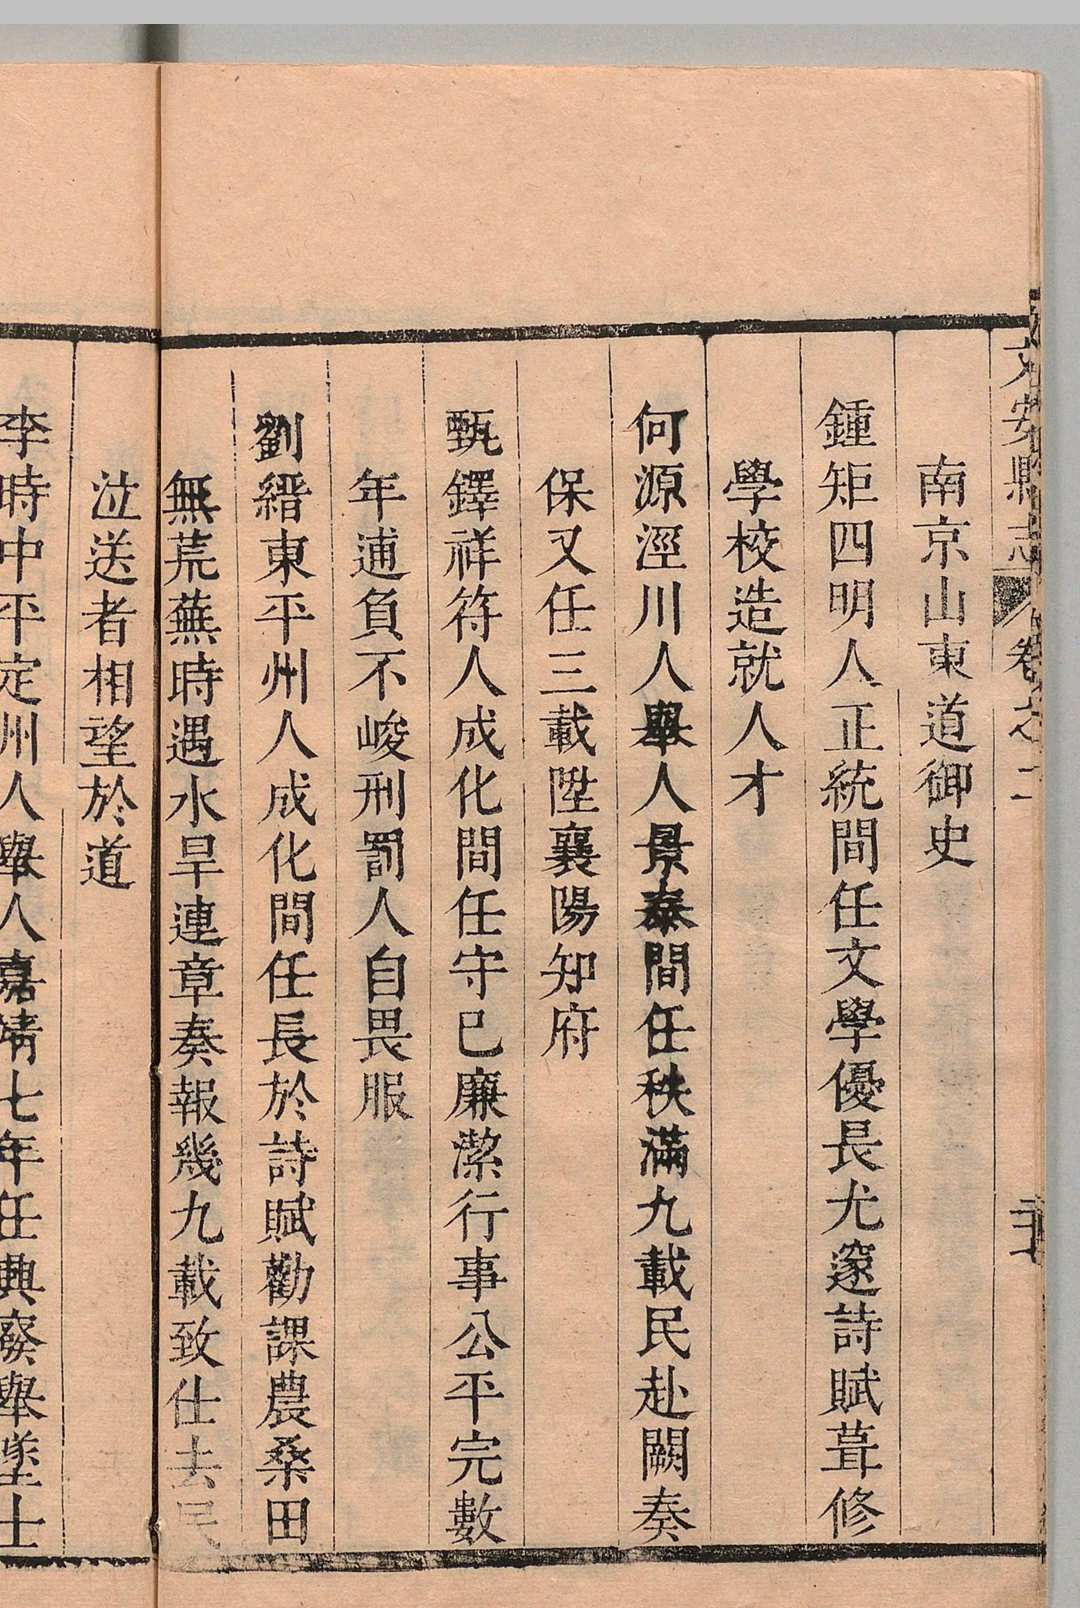 文安縣志 卷之二
南京山東道御史
鍾矩四明人正統間任文學優長尤邃詩賦葺修
學校造就人才
何源涇川人舉人景泰間任秩滿九載民赴闕奏
保又任三載陞襄陽知府
甄鐸祥符人成化間任守已廉潔行事公平完數
年逋負不峻刑罰人自畏服
劉縉東平州人成化間任長於詩賦勸課農桑田
無荒蕪時遇水旱連章奏報幾九載致仕去民
泣送者相望於道
李時中平定州人舉人嘉靖七年任典廢舉墜士